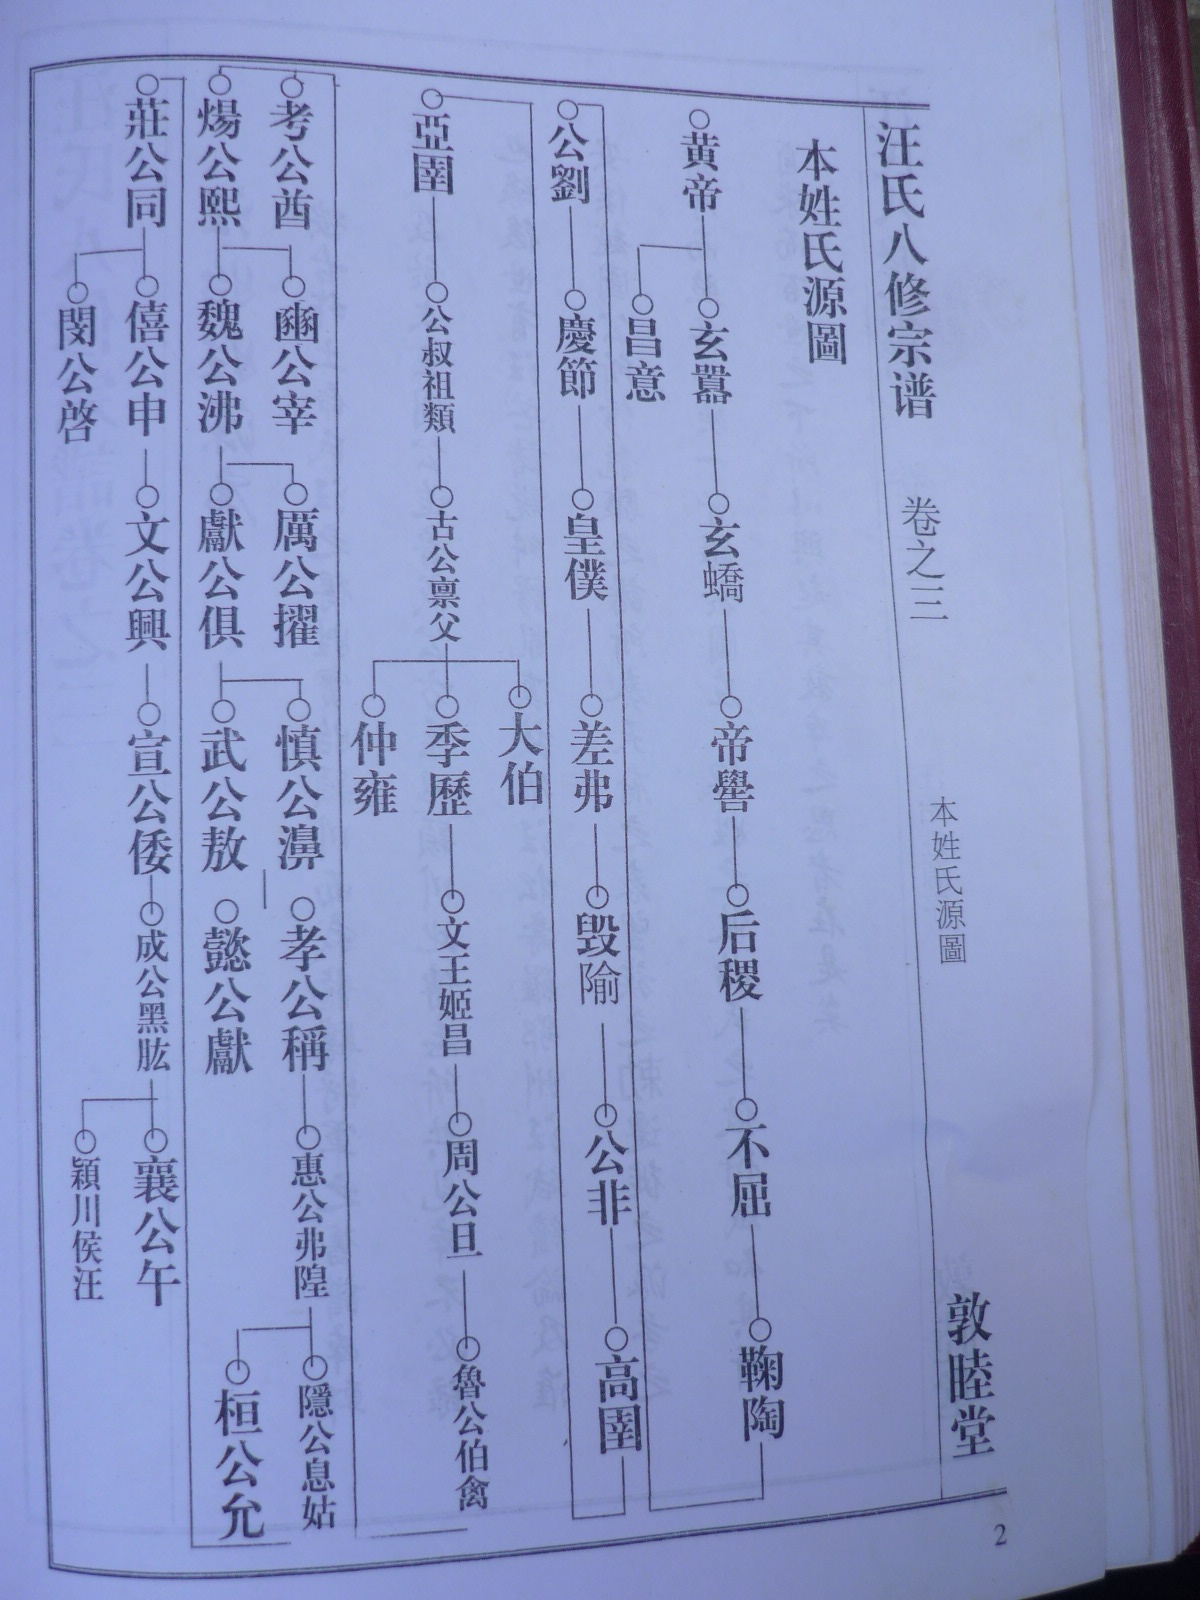 汪氏八修宗谱 卷之三 本姓氏源圖 敦睦堂
2
本姓氏源圖
黄帝 玄囂 玄蟜 帝嚳 后稷 不屈 鞠陶
昌意
公劉 慶節 皇僕 差弗 毁隃 公非 高圉
大伯
亞圉 公叔祖類 古公禀父 季歷 文王姬昌 周公旦 魯公伯禽
仲雍
考公酋 幽公宰 厲公擢 慎公濞 孝公稱 惠公弗隍 隱公息姑
煬公熙 魏公沸 獻公俱 武公敖 懿公獻 桓公允
莊公同 僖公申 文公興 宣公倭 成公黑肱 襄公午
閔公啓 潁川侯汪